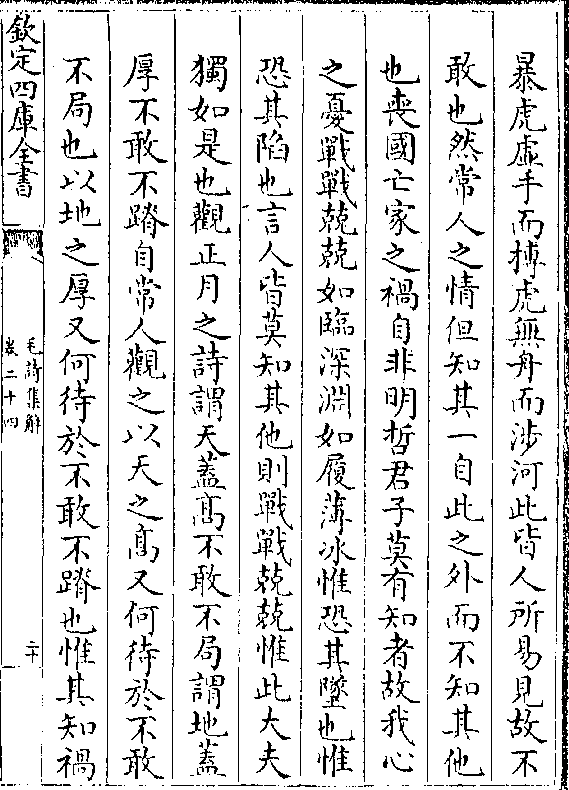 暴虎虛手而搏虎無舟而涉河此皆人所易見故不
敢也然常人之情但知其一自此之外而不知其他
也喪國亡家之禍自非明哲君子莫有知者故我心
之憂戰戰兢兢如臨深淵如履薄冰惟恐其墜也惟
恐其陷也言人皆莫知其他則戰戰兢兢惟此大夫
獨如是也觀正月之詩謂天蓋髙不敢不局謂地蓋
厚不敢不蹐自常人觀之以天之髙又何待於不敢
不局也以地之厚又何待於不敢不蹐也惟其知禍
欽定四庫全書
毛詩集解
卷二十四
二十